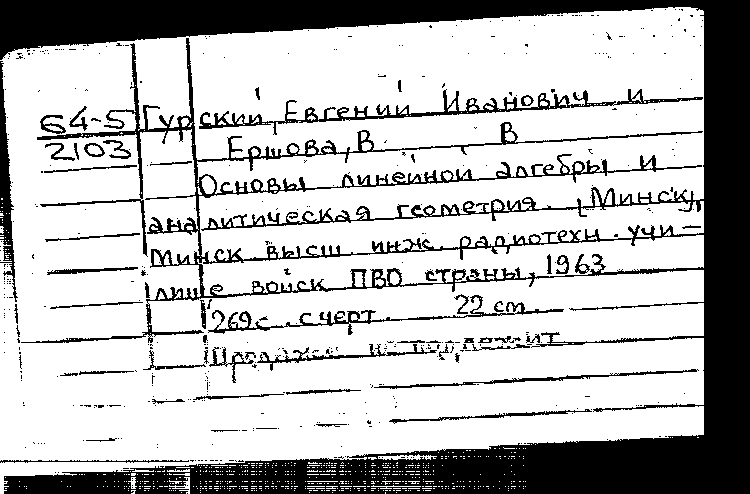 64-5 Гурский, Евгений Иванович и
2103 Ершова, В. В
Основы линейной алгебры и
аналитическая геометрия. [Минск],
Минск. высш. инж. радиотехн. учи-
лище войск ПВО страны, 1963
269с. с черт. 22 cm.
Продаже не подлежит